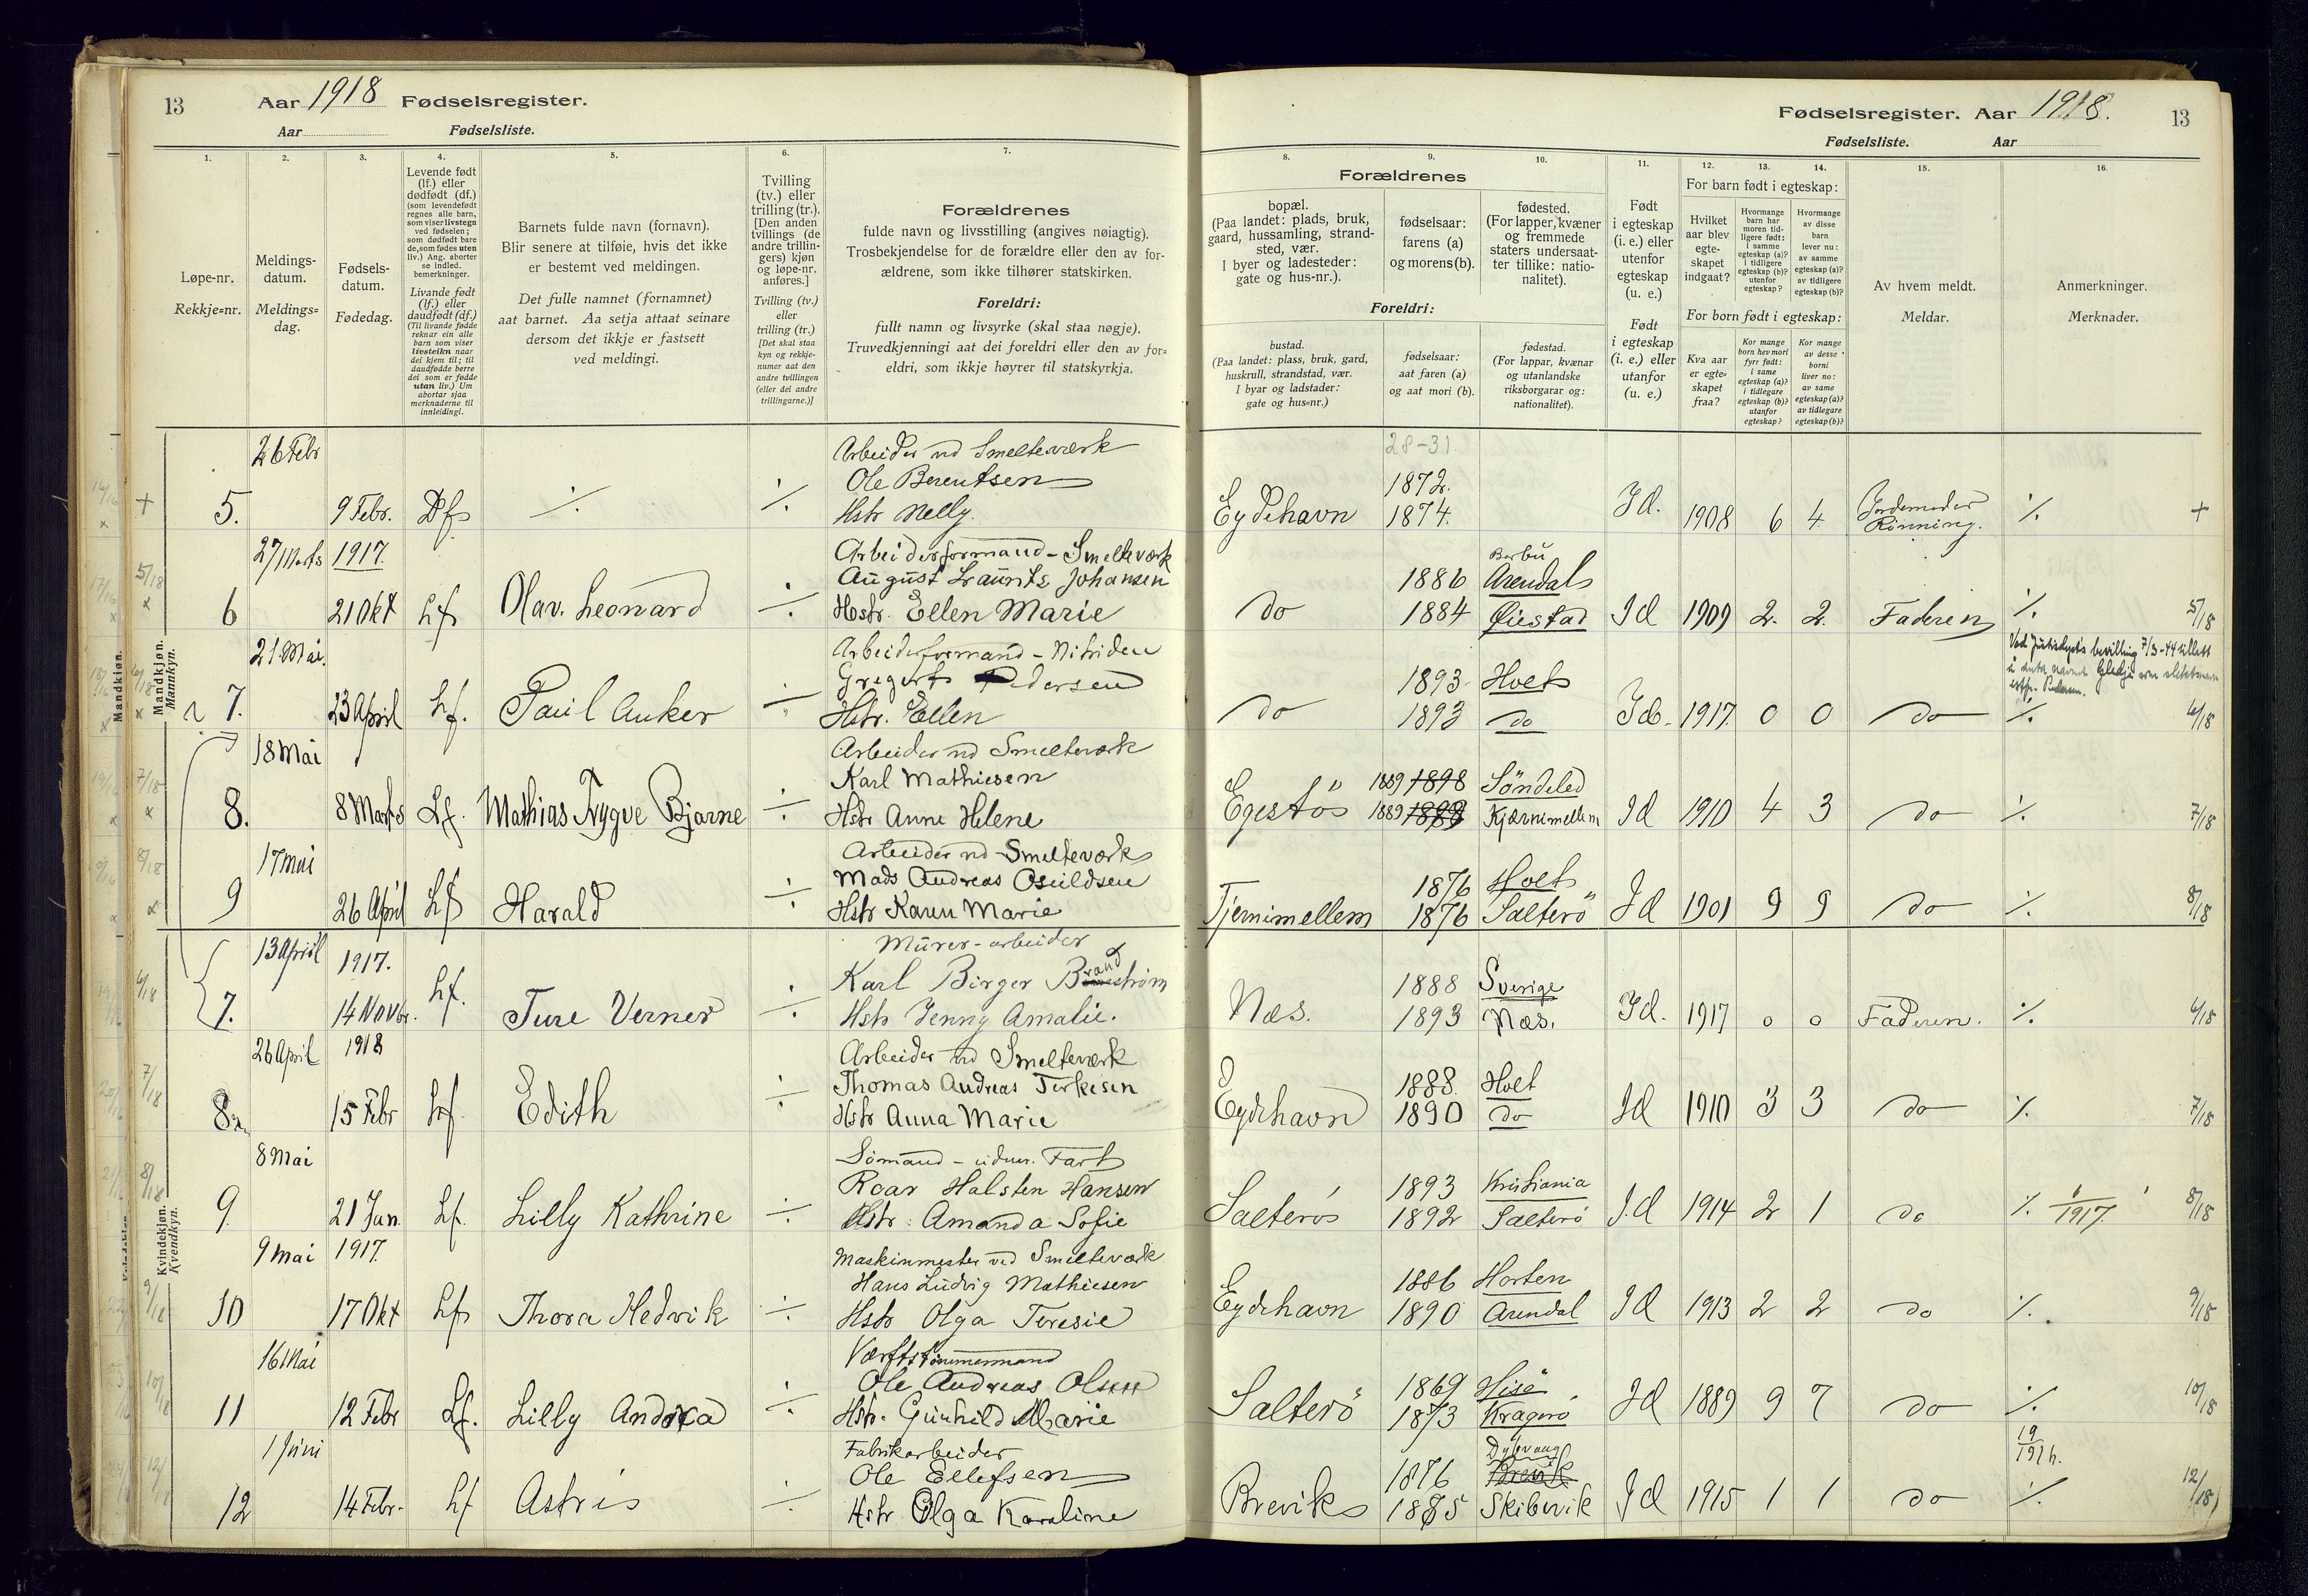 13 Aar 1918 Fødselsregister.
Aar Fødselsliste.
1.
2.
3.
4.
5.
6.
7.
Løpe-nr.
Rekkje=nr.
Meldings-
datum.
Meldings=
dag.
Fødsels-
datum.
Fødedag.
Levende født
(lf.) eller
dødfødt (df.)
(som levendefødt
regnes alle barn,
som viser livstegn
ved fødselen;
som dødfødt bare
de, som fødes uten
liv.) Ang. aborter
se indled.
bemerkninger.
Livande født
(lf.) eller
daudfødt (df.)
(Til livande fødde
reknar ein alle
barn som viser
livsteikn naar
dei kjem til; til
daudfødde berre
dei som er fødde
utan liv.) Um
abortar sjaa
merknaderne til
innleidingi.
Barnets fulde navn (fornavn).
Blir senere at tilføie, hvis det ikke
er bestemt ved meldingen.
Det fulle namnet (fornamnet)
aat barnet. Aa setja attaat seinare
dersom det ikkje er fastsett
ved meldingi.
Tvilling
(tv.) eller
trilling (tr.).
[Den anden
tvillings (de
andre trillin-
gers) kjøn
og løpe-nr.
anføres.]
Tvilling (tv.)
eller
trilling (tr.)
[Det skal staa
kyn og rekkje-
numer aat den
andre tvillingen
(eller dei andre
trillingarne.)]
Forældrenes
fulde navn og livsstilling (angives nøiagtig).
Trosbekjendelse for de forældre eller den av for-
ældrene, som ikke tilhører statskirken.
Foreldri:
fullt namn og livsyrke (skal staa nøgje).
Truvedkjenningi aat dei foreldri eller den av for=
eldri, som ikkje høyrer til statskyrkja.
Mandkjøn.
Mannkyn.
26 Febr
Arbeider vd Smelteværk
Ole Berentsen
5. 9 Febr. Df ./. ./. Hstr Nelly.
27 Marts 1917.
Arbeiderformand - Smelteværk
August Laurits Johansen
6 21 Okt Lf Olav. Leonard ./. Hstr. Ellen Marie
21 Mai.
Arbeiderformand - Nitriden
Gregert Pedersen
7. 23 April Lf. Paul Anker ./. Hstr. Ellen
18 Mai
Arbeider vd Smelteværk
Karl Mathiesen
8. 8 Marts Lf. Mathias Trygve Bjarne ./. Hstr Anne Helene
17 Mai
Arbeider vd Smelteværk
Mads Andreas Osuldsen
9 26 April Lf Harald ./. Hstr Karen Marie
Kvindekjøn.
Kvendkyn.
13 April 1917.
Murer-arbeider
Karl Birger Brandstrøm
7. 14 Novbr. Lf. Ture Verner ./. Hstr Jenny Amalie.
26 April 1918
Arbeider vd Smelteværk
Thomas Andreas Terkesen
8. 15 Febr Lf. Edith ./. Hstr Anna Marie
8 Mai
Sømand - udenr. Fart
Roar Halsten Hansen
9. 21 Jan. Lf. Lilly Kathrine ./. Hstr. Amanda Sofie
9 Mai 1917.
Maskinmester ved Smelteværk
Hans Ludvig Mathiesen
10 17 Okt Lf Thora Hedvik ./. Hstr Olga Teresie
16 Mai
Værftstømmermand
Ole Andreas Olsen
11 12 Febr Lf. Lilly Andrea ./. Hstr. Gunhild Marie
1 Juni
Fabrikarbeider
Ole Ellefsen
12 14 Febr. Lf Astris ./. Hstr Olga Karoline
Fødselsregister. Aar 1918. 13
Fødselsliste. Aar
8.
9.
10.
11.
12.
13.
14.
15.
16.
Forældrenes
bopæl.
(Paa landet: plads, bruk,
gaard, hussamling, strand-
sted, vær.
I byer og ladesteder:
gate og hus-nr.).
fødselsaar:
farens (a)
og morens (b).
fødested.
(For lapper, kvæner
og fremmede
staters undersaat-
ter tillike: natio-
nalitet).
Foreldri:
bustad.
(Paa landet: plass, bruk, gard,
huskrull, strandstad, vær.
I byar og ladstader:
gate og hus=nr.)
fødselsaar:
aat faren (a)
og aat mori (b).
fødestad.
(For lappar, kvænar
og utanlandske
riksborgarar og:
nationalitet).
Født
i egteskap
(i. e.) eller
utenfor
egteskap
(u. e.)
Født
i egteskap
(i. e.) eller
utanfor
(u. e.)
For barn født i egteskap:
Hvilket
aar blev
egte-
skapet
indgaat?
Hvormange
barn har
moren tid-
ligere født:
i samme
egteskap (a)?
i tidligere
egteskap (b)?
utenfor
egteskap?
Hvormange
av disse
barn
lever nu:
av samme
egteskap (a)?
av tidligere
egteskap (b)?
For born født i egteskap:
Kva aar
er egte=
skapet
fraa?
Kor mange
born hev mori
fyrr født:
i same
egteskap (a)?
i tidlegare
egteskap (b)?
utanfor
egteskap?
Kor mange
av desse
borni
liver no:
av same
egteskap (a)?
av tidlegare
egteskap (b)?
Av hvem meldt.
Meldar.
Anmerkninger.
Merknader.
28-31.
1872.
Eydehavn 1874. Id. 1908 6 4 Jordemoder
Rinning. ./. +
Barbu
1886 Arendal
do 1884 Øiestad Id 1909 2. 2. Faderen ./. 5/18
Ved Justisdep.ts bevilling 7/3-44 tillatt
å anta navnet
1893 Holt
do 1893 do Id. 1917 0 0 do ./. 6/18
1889 1898 Søndeled
Egestø 1889 1898 Kjærnimellem Id 1910 4 3 do ./. 7/18
1876 Holt
Tjernimellem 1876 Salterö Id 1901 9 9 do ./. 8/18
1888 Sverige
Næs. 1893 Næs. Id. 1917 0 0 Faderen. ./. 6/18
1888. Holt
Eydehavn 1890 do Id 1910 3 3 do ./. 7/18
1893 Kristiania
Salterö 1892 Salterö Id 1914 2 1 do ./. 1/1917. 8/18
1886 Horten
Eydehavn 1890 Arendal Id 1913 2 2 do ./. 9/18
1869 Hisö
Salterö 1873 Kragerö Id 1889 9 7 do ./. 10/18
Dybvaag
19/1916.
1876 Brevik
Brevik 1885 Skibervik Id 1915 1 1 do ./. 12/18